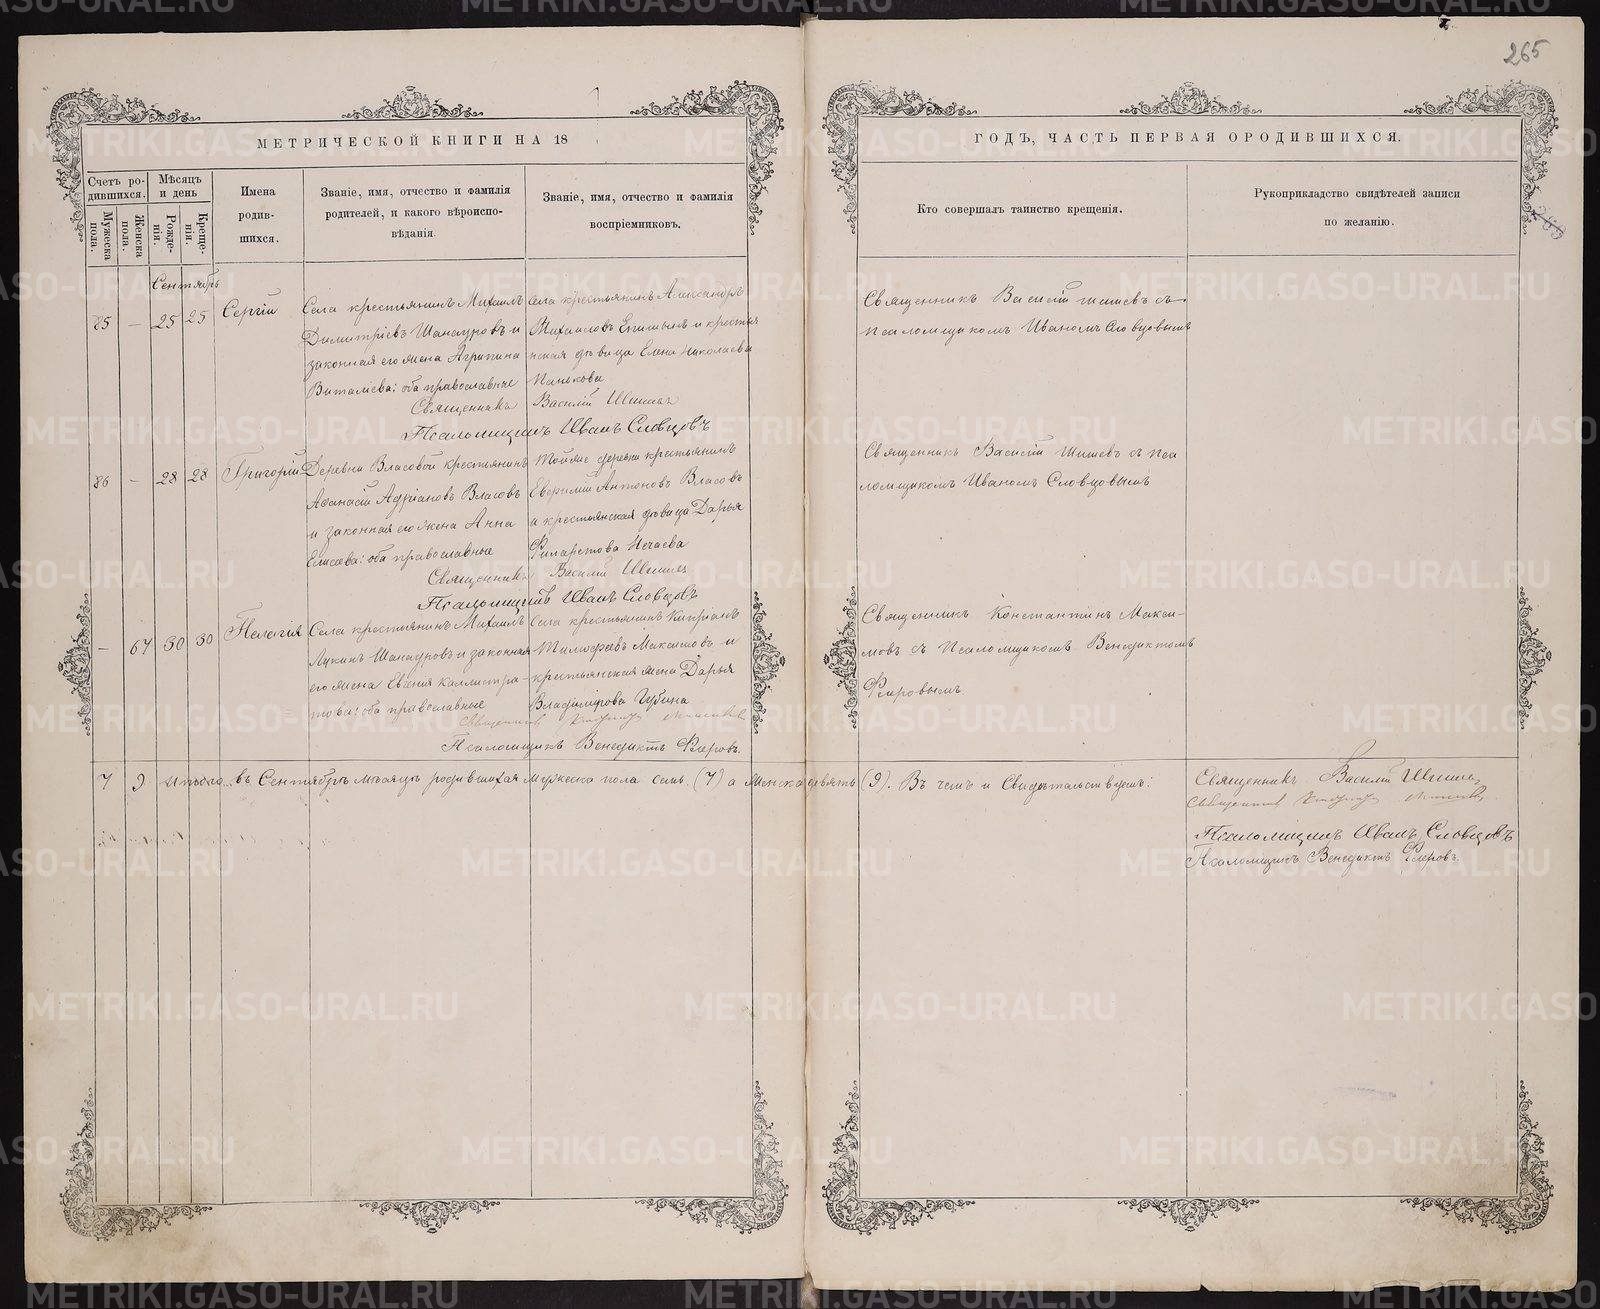 265
МЕТРИЧЕСКОЙ КНИГИ НА 18
ГОДЪ, ЧАСТЬ ПЕРВАЯ О РОДИВШИХСЯ.
Счетъ ро-
дившихся.
Мужеска
пола.
Женска
пола.
Мѣсяцъ
и день
Рожде-
нія.
Креще-
нія.
Имена
родив-
шихся.
Званіе, имя, отчество и фамилія
родителей, и какого вѣроиспо-
вѣданія.
Званіе, имя, отчество и фамилія
воспріемниковъ.
Кто совершалъ таинство крещенія.
Рукоприкладство свидѣтелей записи
по желанію.
Сентябрь
85 — 25 25
Сергій
Села крестьянинъ Михаилъ
Димитріевъ Шанауровъ и
законная его жена Агрипина
Виталіева: оба православные
Села крестьянинъ Александръ
Михаиловъ Епишинъ и крестья
нская дѣвица Елена Николаева
Панькова
Священникъ Василій Шишевъ
Псаломщикъ Иванъ Словцовъ
Священникъ Василій Шишевъ съ
псаломщикомъ Иваномъ Словцовымъ
86 — 28 28
Григорій
Деревни Власовой крестьянинъ
Аѳанасій Адріановъ Власовъ
и законная его жена Анна
Елисева: оба православные
Тойже деревни крестьянинъ
Евфимій Антоновъ Власовъ
и крестьянская дѣвица Дарья
Филаретова Нечаева
Священникъ Василій Шишев
Псаломщикъ Иванъ Словцовъ
Священникъ Василій Шишевъ съ пса
ломщикомъ Иваномъ Словцовымъ
— 67 30 30
Пелагія
Села крестьянинъ Михаилъ
Лукинъ Шанауровъ и законная
его жена Евгенія Каллистра-
това: оба православные
Села крестьянинъ Кипріанъ
Тимоѳеевъ Максимовъ и
крестьянская жена Дарья
Владимірова Губина
Священникъ
Псаломщикъ Венедиктъ Флеровъ.
Священникъ Константинъ Макси-
мовъ съ Псаломщикомъ Венедиктомъ
Флеровымъ
7 9 Итого въ Сентябрѣ мѣсяцѣ родившихся мужеска пола семь (7) а женска девять (9). Въ чемъ и Свидѣтельствуемъ:
Священникъ Василій Шишев
Священникъ
Псаломщикъ Иванъ Словцовъ
Псаломщикъ Венедиктъ Флеровъ.
METRIKI.GASO-URAL.RU